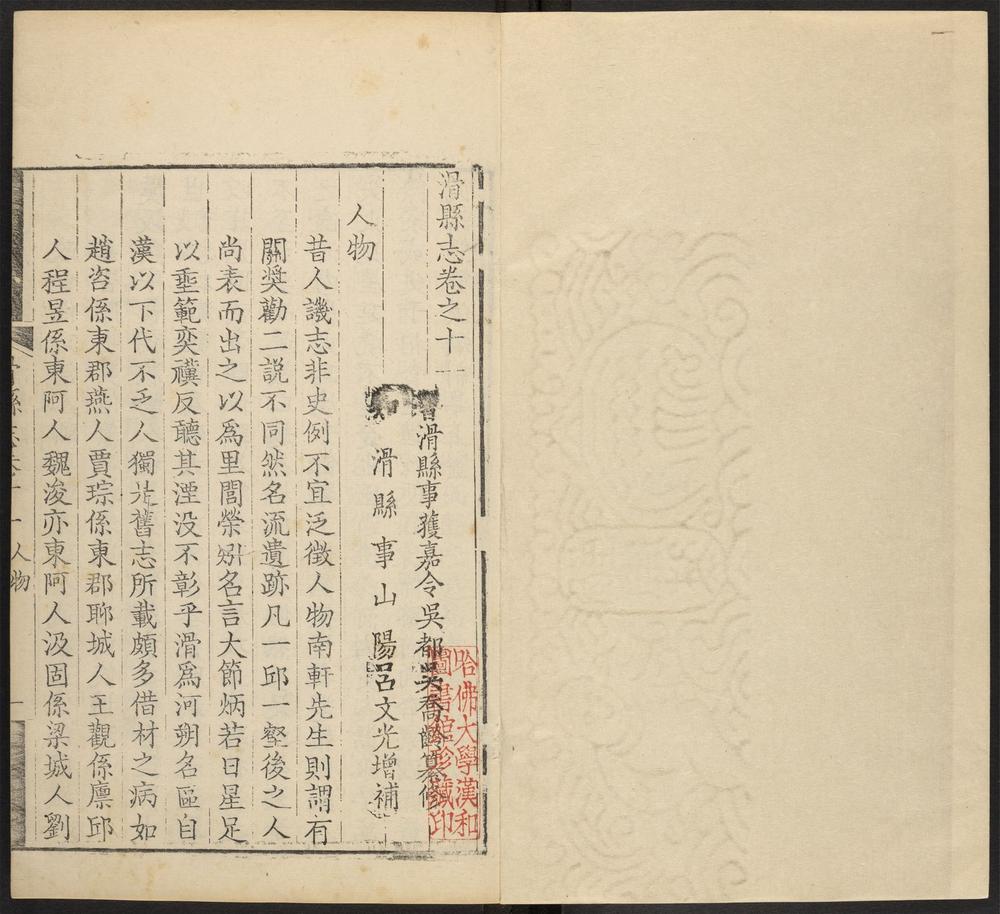 滑縣志卷之十
署滑縣事獲嘉令吳都吳喬齡纂修
知滑縣事山陽呂文光增補
人物
昔人譏志非史例不宜泛徵人物南軒先生則謂有
關奬勸二説不同然名流遺跡凡一邱一壑後之人
尚表而出之以爲里閭榮矧名言大節炳若日星足
以埀範奕禩反聽其湮没不彰乎滑爲河朔名區自
漢以下代不乏人獨是舊志所載頗多借材之病如
趙咨係東郡燕人賈琮係東郡聊城人王觀係廪邱
人程昱係東阿人魏浚亦東阿人汲固係梁城人劉
人物
一
哈佛大學漢和
圖書館珍藏印